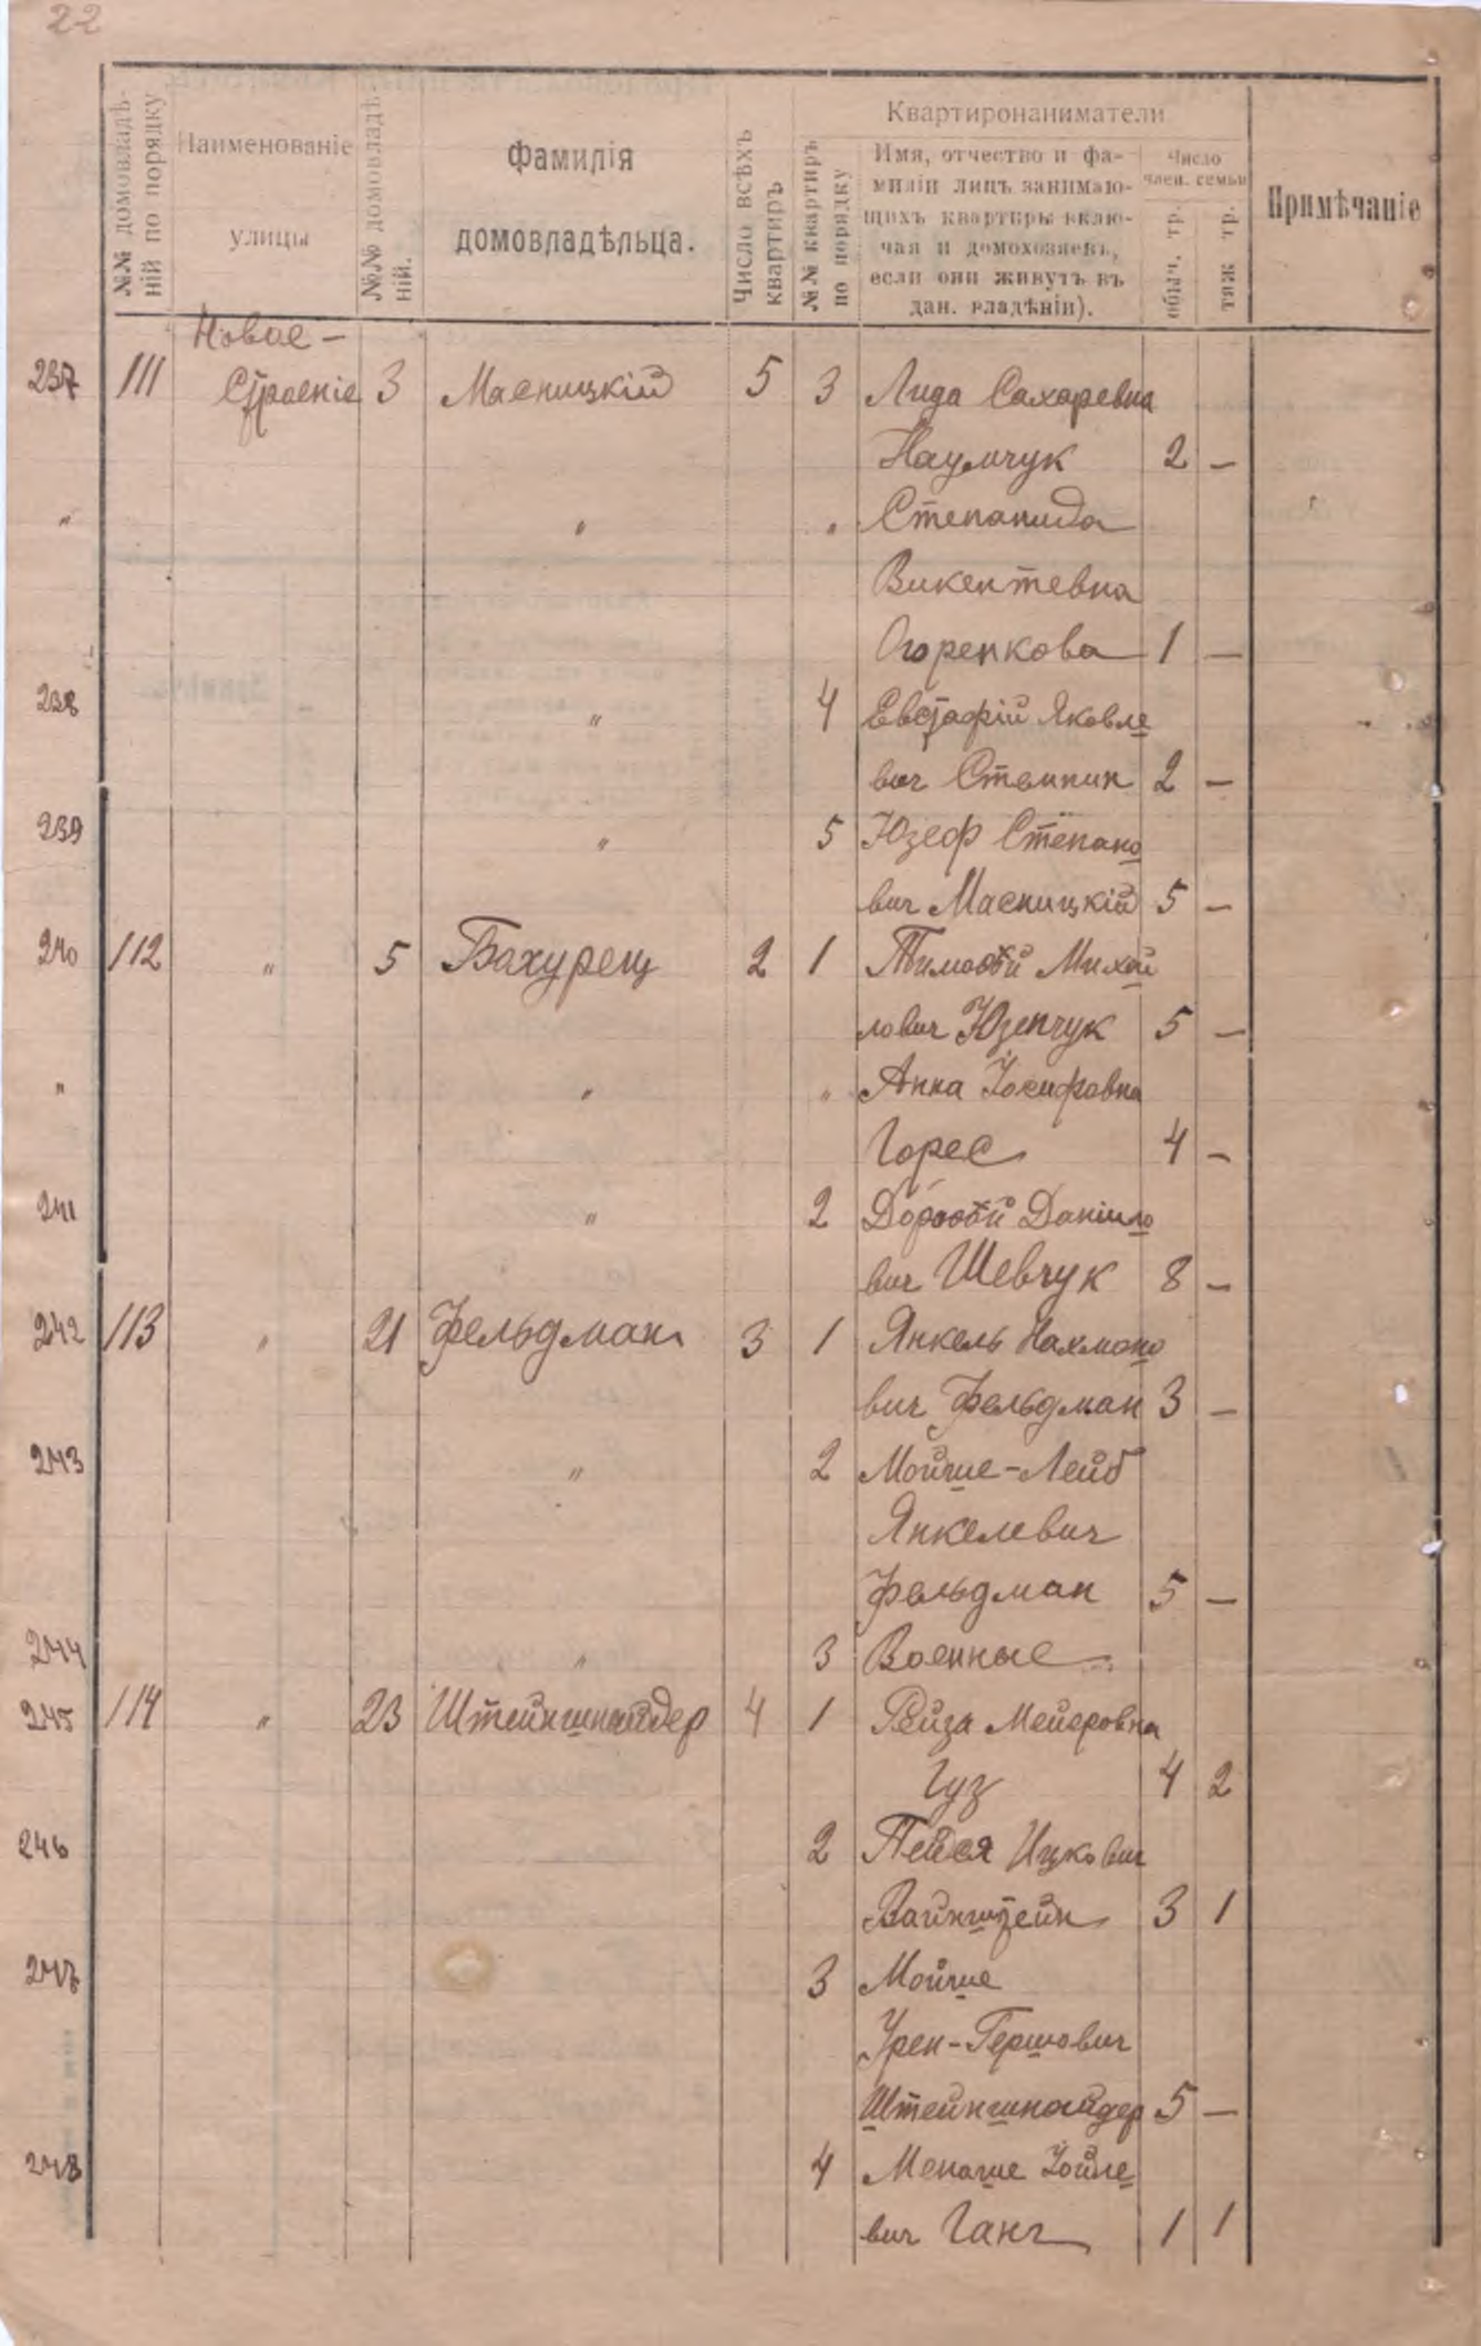 22
№№ домовладѣ-
ній по порядку
Наименованіе
улицы
№№ домовладѣ-
ній.
Фамилія
домовладѣльца.
Число всѣхъ
квартиръ
№№ квартиръ
по порядку
Квартиронаниматели
Имя, отчество и фа-
миліи лицъ занимаю-
щихъ квартиры вклю-
чая и домохозяевъ,
если они живутъ въ
дан. владѣніи).
Число
член. семьи
обыч. тр.
тяж тр.
Примѣчаніе
Новое-
237 111 Строеніе 3 Масницкій 5 3 Лида Сахаревна
Наумчук 2 —
" " " Степанида
Викентевна
Огоренкова 1 —
238 " 4 Евстафій Яковле
вич Стенник 2 —
239 " 5 Юзеф Степано
вич Масницкій 5 —
240 112 " 5 Бахурец 2 1 Тимофѣй Михай
лович Юзепчук 5 —
" " " Анна Іосифовна
Горес 4 —
241 " 2 Дорофѣй Даніило
вич Шевчук 8 —
242 113 " 21 Фельдман 3 1 Янкель Нахмано
вич Фельдман 3 —
243 " 2 Мойше-Лейб
Янкелевич
Фельдман 5 —
244 " 3 Военные
245 114 " 23 Штейншнайдер 4 1 Рейза Мейеровна
Гуз 4 2
246 2 Пейся Ицкович
Вайнштейн 3 1
247 3 Мойше
Урен-Гершович
Штейншнайдер 5 —
248 4 Менаше Іойле
вич Ганг 1 1